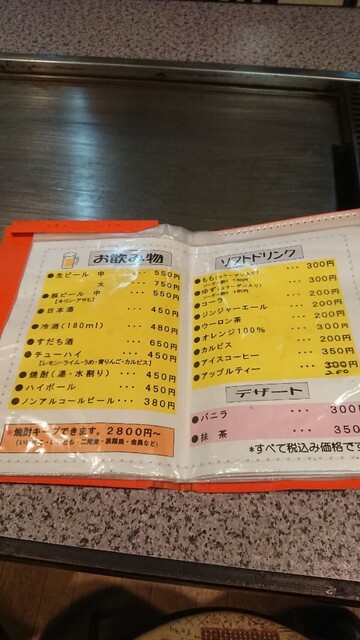 お飲み物
●生ビール 中 ･･･ 550円
大 ･･･ 750円
●瓶ビール 中 ･･･ 550円
【キリン・アサヒ】
●日本酒 ･･･ 450円
●冷酒(180ml) ･･･ 480円
●すだち酒 ･･･ 650円
●チューハイ ･･･ 450円
【レモン・ライム・うめ・青りんご・カルピス】
●焼酎(湯・水割り) ･･･ 450円
●ハイボール ･･･ 450円
●ノンアルコールビール ･･･ 380円
焼酎キープできます。2800円〜
ソフトドリンク
●もも(コラーゲン入り) ･･･ 300円
●ゆず(コラーゲン入り) ･･･ 300円
●コーラ ･･･ 200円
●ジンジャーエール ･･･ 200円
●ウーロン茶 ･･･ 200円
●オレンジ100% ･･･ 300円
●カルピス ･･･ 200円
●アイスコーヒー ･･･ 350円
●アップルティー ･･･ 300円
デザート
●バニラ ･･･ 300
●抹茶 ･･･ 350
*すべて税込み価格です